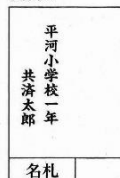 平河小学校一年
共済太郎
名札